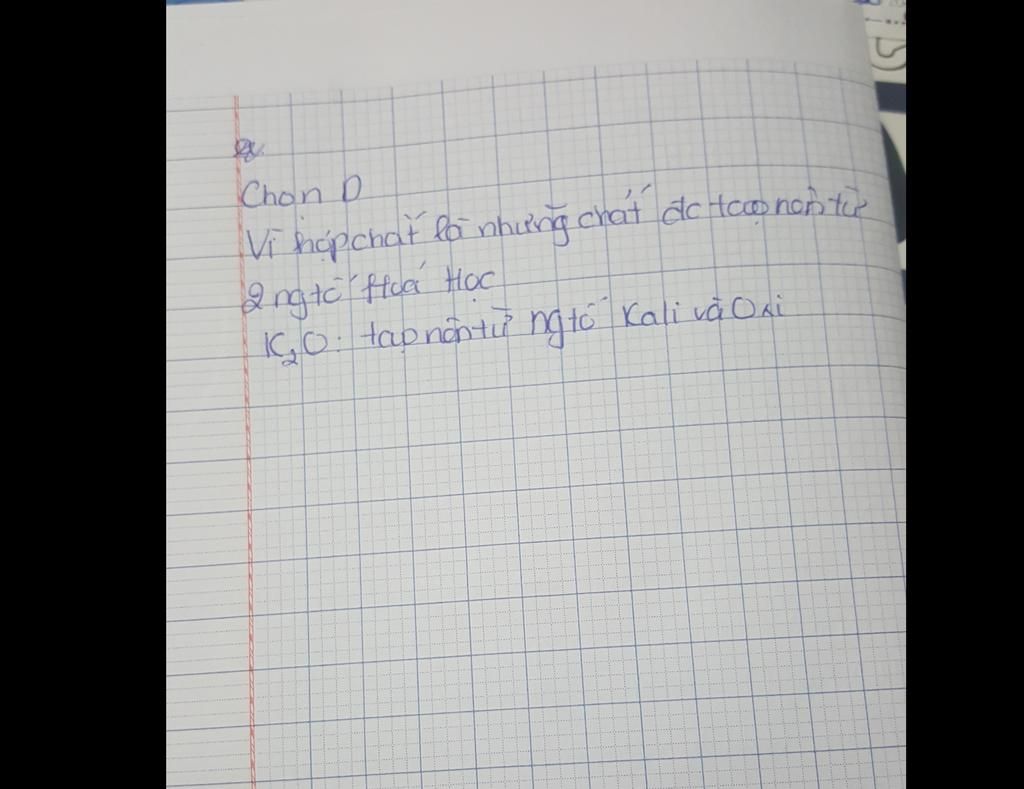 Chọn D
Vì hợp chất là những chất đc tạo nên từ
2 ng tố Hoá Học
K₂O: tạo nên từ ng tố Kali và Oxi